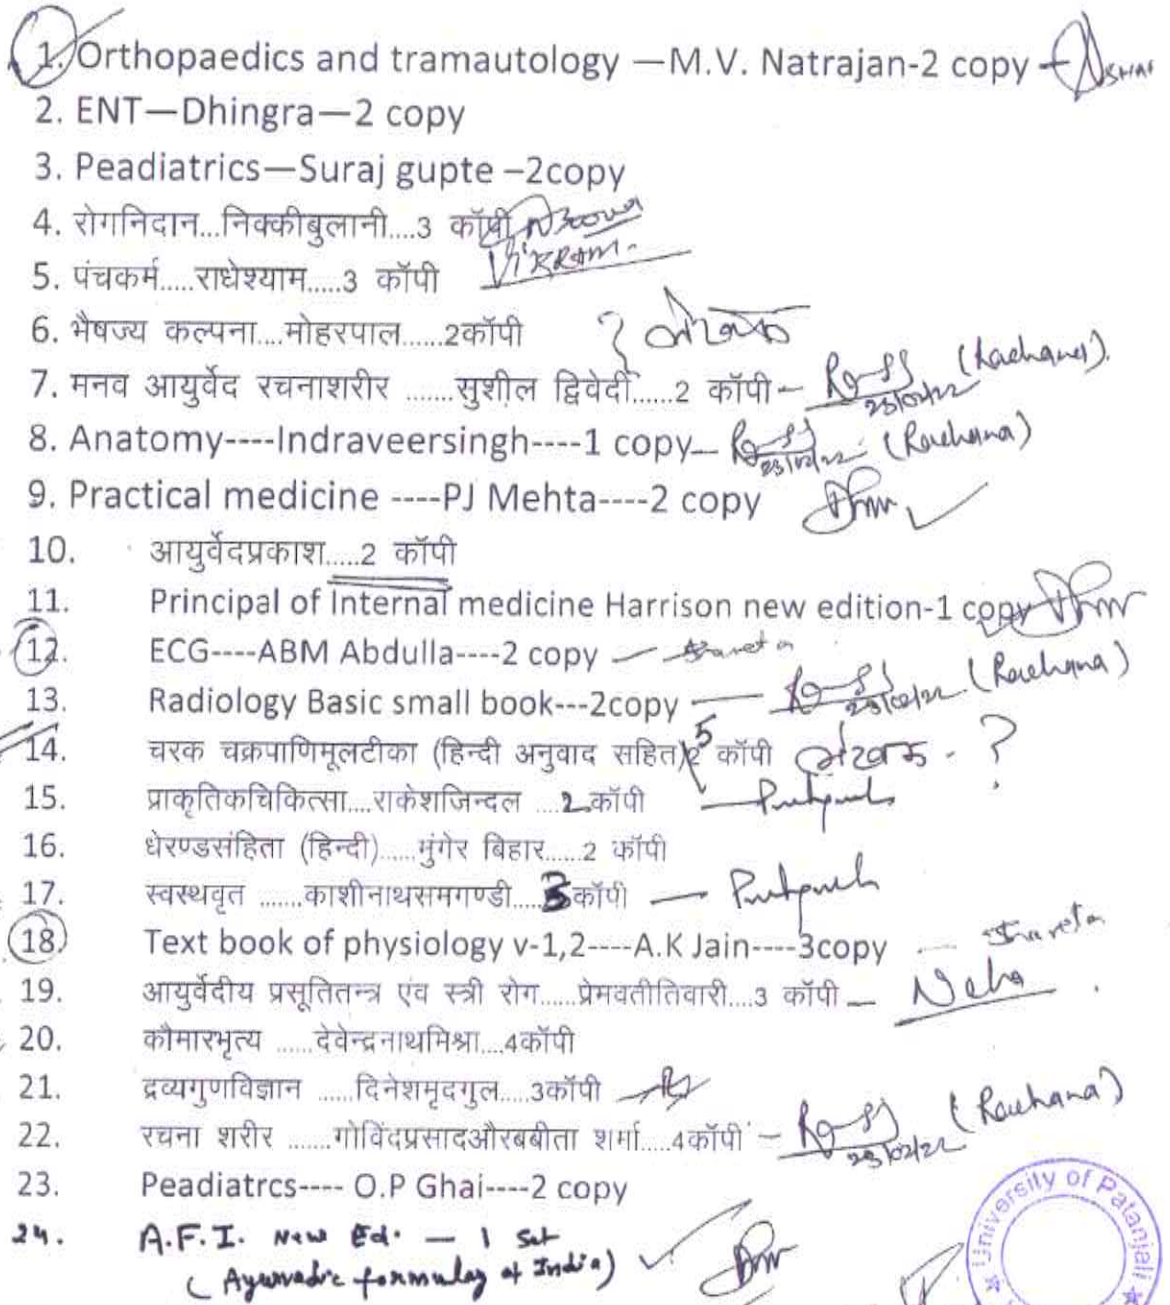 1. Orthopaedics and tramautology —M.V. Natrajan-2 copy
2. ENT—Dhingra—2 copy
3. Peadiatrics—Suraj gupte –2copy
4. रोगनिदान...निक्कीबुलानी....3 कॉपी
Vikram
5. पंचकर्म.....राधेश्याम.....3 कॉपी
6. भैषज्य कल्पना....मोहरपाल......2कॉपी ?
7. मनव आयुर्वेद रचनाशरीर .......सुशील द्विवेदी......2 कॉपी – (Rachana).
23/02/22
8. Anatomy----Indraveersingh----1 copy– (Rachana)
23/02/22
9. Practical medicine ----PJ Mehta----2 copy
10. आयुर्वेदप्रकाश.....2 कॉपी
11. Principal of Internal medicine Harrison new edition-1 copy
12. ECG----ABM Abdulla----2 copy –
13. Radiology Basic small book---2copy – (Rachana)
23/02/22
14. चरक चक्रपाणिमूलटीका (हिन्दी अनुवाद सहित) 5 कॉपी - ?
15. प्राकृतिकचिकित्सा....राकेशजिन्दल ....2कॉपी —
16. धेरण्डसंहिता (हिन्दी)......मुंगेर बिहार......2 कॉपी
17. स्वस्थवृत .......काशीनाथसमगण्डी.....3कॉपी —
18. Text book of physiology v-1,2----A.K Jain----3copy —
19. आयुर्वेदीय प्रसूतितन्त्र एंव स्त्री रोग.....प्रेमवतीतिवारी....3 कॉपी – Neha
20. कौमारभृत्य ......देवेन्द्रनाथमिश्रा....4कॉपी
21. द्रव्यगुणविज्ञान ......दिनेशमृदगुल.....3कॉपी
22. रचना शरीर .......गोविंदप्रसादऔरबबीता शर्मा.....4कॉपी – (Rachana)
23/02/22
23. Peadiatrcs---- O.P Ghai----2 copy
24. A.F.I. New Ed. – 1 Set
(Ayurvadic formulay of India)
University of Patanjali